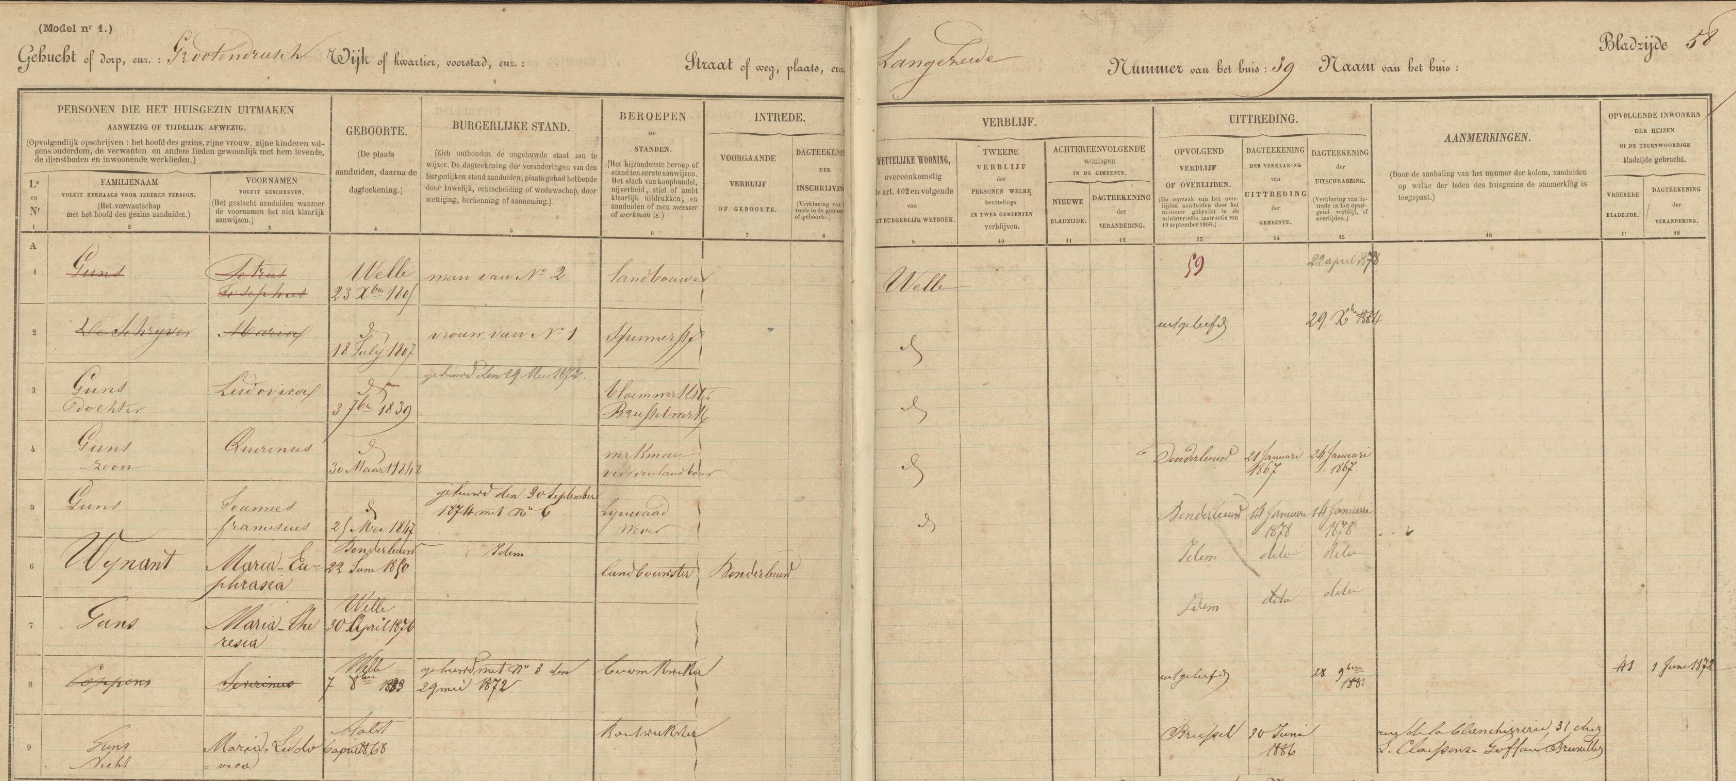 (Model nr 1.)
Gehucht of dorp, enz. : Grootendriesch Wijk of kwartier, voorstad, enz. : Straat of weg, plaats, enz. Langeheide Nummer van het huis : 59 Naam van het huis :
Bladzijde 58
PERSONEN DIE HET HUISGEZIN UITMAKEN
AANWEZIG OF TIJDELIJK AFWEZIG.
(Opvolgendlijk opschrijven : het hoofd des gezins, zijne vrouw, zijne kinderen vol-
gens ouderdom, de verwanten en andere lieden gewoonlijk met hem levende,
de dienstboden en inwoonende werklieden.)
Ls
en
Nr
FAMILIENAAM
VOLUIT HERHAALD VOOR IEDEREN PERSOON.
(Het verwantschap
met het hoofd des gezins aanduiden.)
VOORNAMEN
VOLUIT GESCHREVEN.
(Het geslacht aanduiden wanneer
de voornamen het niet klaarlijk
aanwijzen.)
GEBOORTE.
(De plaats
aanduiden, daarna de
dagteekening.)
BURGERLIJKE STAND.
(Zich onthouden de ongehuwde staat aan te
wijzen. De dagteekening der veranderingen van den
burgerlijken stand aanduiden, plaats gehad hebbende
door huwelijk, echtscheiding of weduwschap, door
wettiging, herkenning of aanneming.)
BEROEPEN
OF
STANDEN.
(Het bijzonderste beroep of
stand ten eerste aanwijzen.
Het slach van koophandel,
nijverheid, stiel of ambt
klaarlijk uitdrukken, en
aanduiden of men meester
of werkman is.)
INTREDE.
VOORGAANDE
VERBLIJF
OF GEBOORTE.
DAGTEEKENING
DER
INSCHRIJVING
VERBLIJF.
WETTELIJKE WONING,
overeenkomstig
de art. 102 en volgende
van
HET BURGERLIJK WETBOEK.
TWEEDE
VERBLIJF
der
PERSONEN WELKE
beurtelings
IN TWEE GEMEENTEN
verblijven.
ACHTEREENVOLGENDE
woningen
IN DE GEMEENTE.
NIEUWE
BLADZIJDE.
DAGTEEKENING
der
VERANDERING.
UITTREDING.
OPVOLGEND
VERBLIJF
OF OVERLIJDEN.
DAGTEEKENING
DER VERKLARING
van
UITTREDING
der
GEMEENTE.
DAGTEEKENING
der
UITSCHRABBING.
AANMERKINGEN.
(Door de aanhaling van het nummer der kolom, aanduiden
op welke der leden des huisgezins de aanmerking is
toegepast.)
OPVOLGENDE INWONERS
DER HUIZEN
OP DE TEGENWOORDIGE
bladzijde gebracht.
VROEGERE
BLADZIJDE.
DAGTEEKENING
der
VERANDERING.
1 2 3 4 5 6 7 8 9 10 11 12 13 14 15 16 17 18
A
1 Guns Petrus Josephus Welle 23 Xber man van No 2 landbouwer Welle 59 22 april 1878
2 De Schryver Maria d 18 July 1807 vrouw van No 1 spinnersse " d uitgeleefd
3 Guns Dochter Ludovica d 3 7ber 1839 gehuwd den 29 Mei 1872. d
4 Guns zoon Quirinus d 30 Maart 1842 werkman d Denderleeuw 21 Januari 1867 24 Januari 1867
5 Guns Joannes franciscus d gehuwd den 30 September 1874 met No 6 d Denderleeuw 14 Januari 1878 14 Januari 1878
6 Wynant Maria-Euphrasia Denderleeuw 22 Juni 1850 Idem landbouwster Denderleeuw Idem dito dito
7 Guns Maria-Theresia Welle 30 April 1876 Idem dito dito
8 Coppens Welle 7 8ber gehuwd met No 3 den 29 mei 1872 uitgeleefd 28 9ber 41 1 Juni 1872
9 Guns Nicht Maria-Ludovica Aalst 6 april 1868 Brussel 30 Juni 1886 rue de la Blanchisserie 31 chez